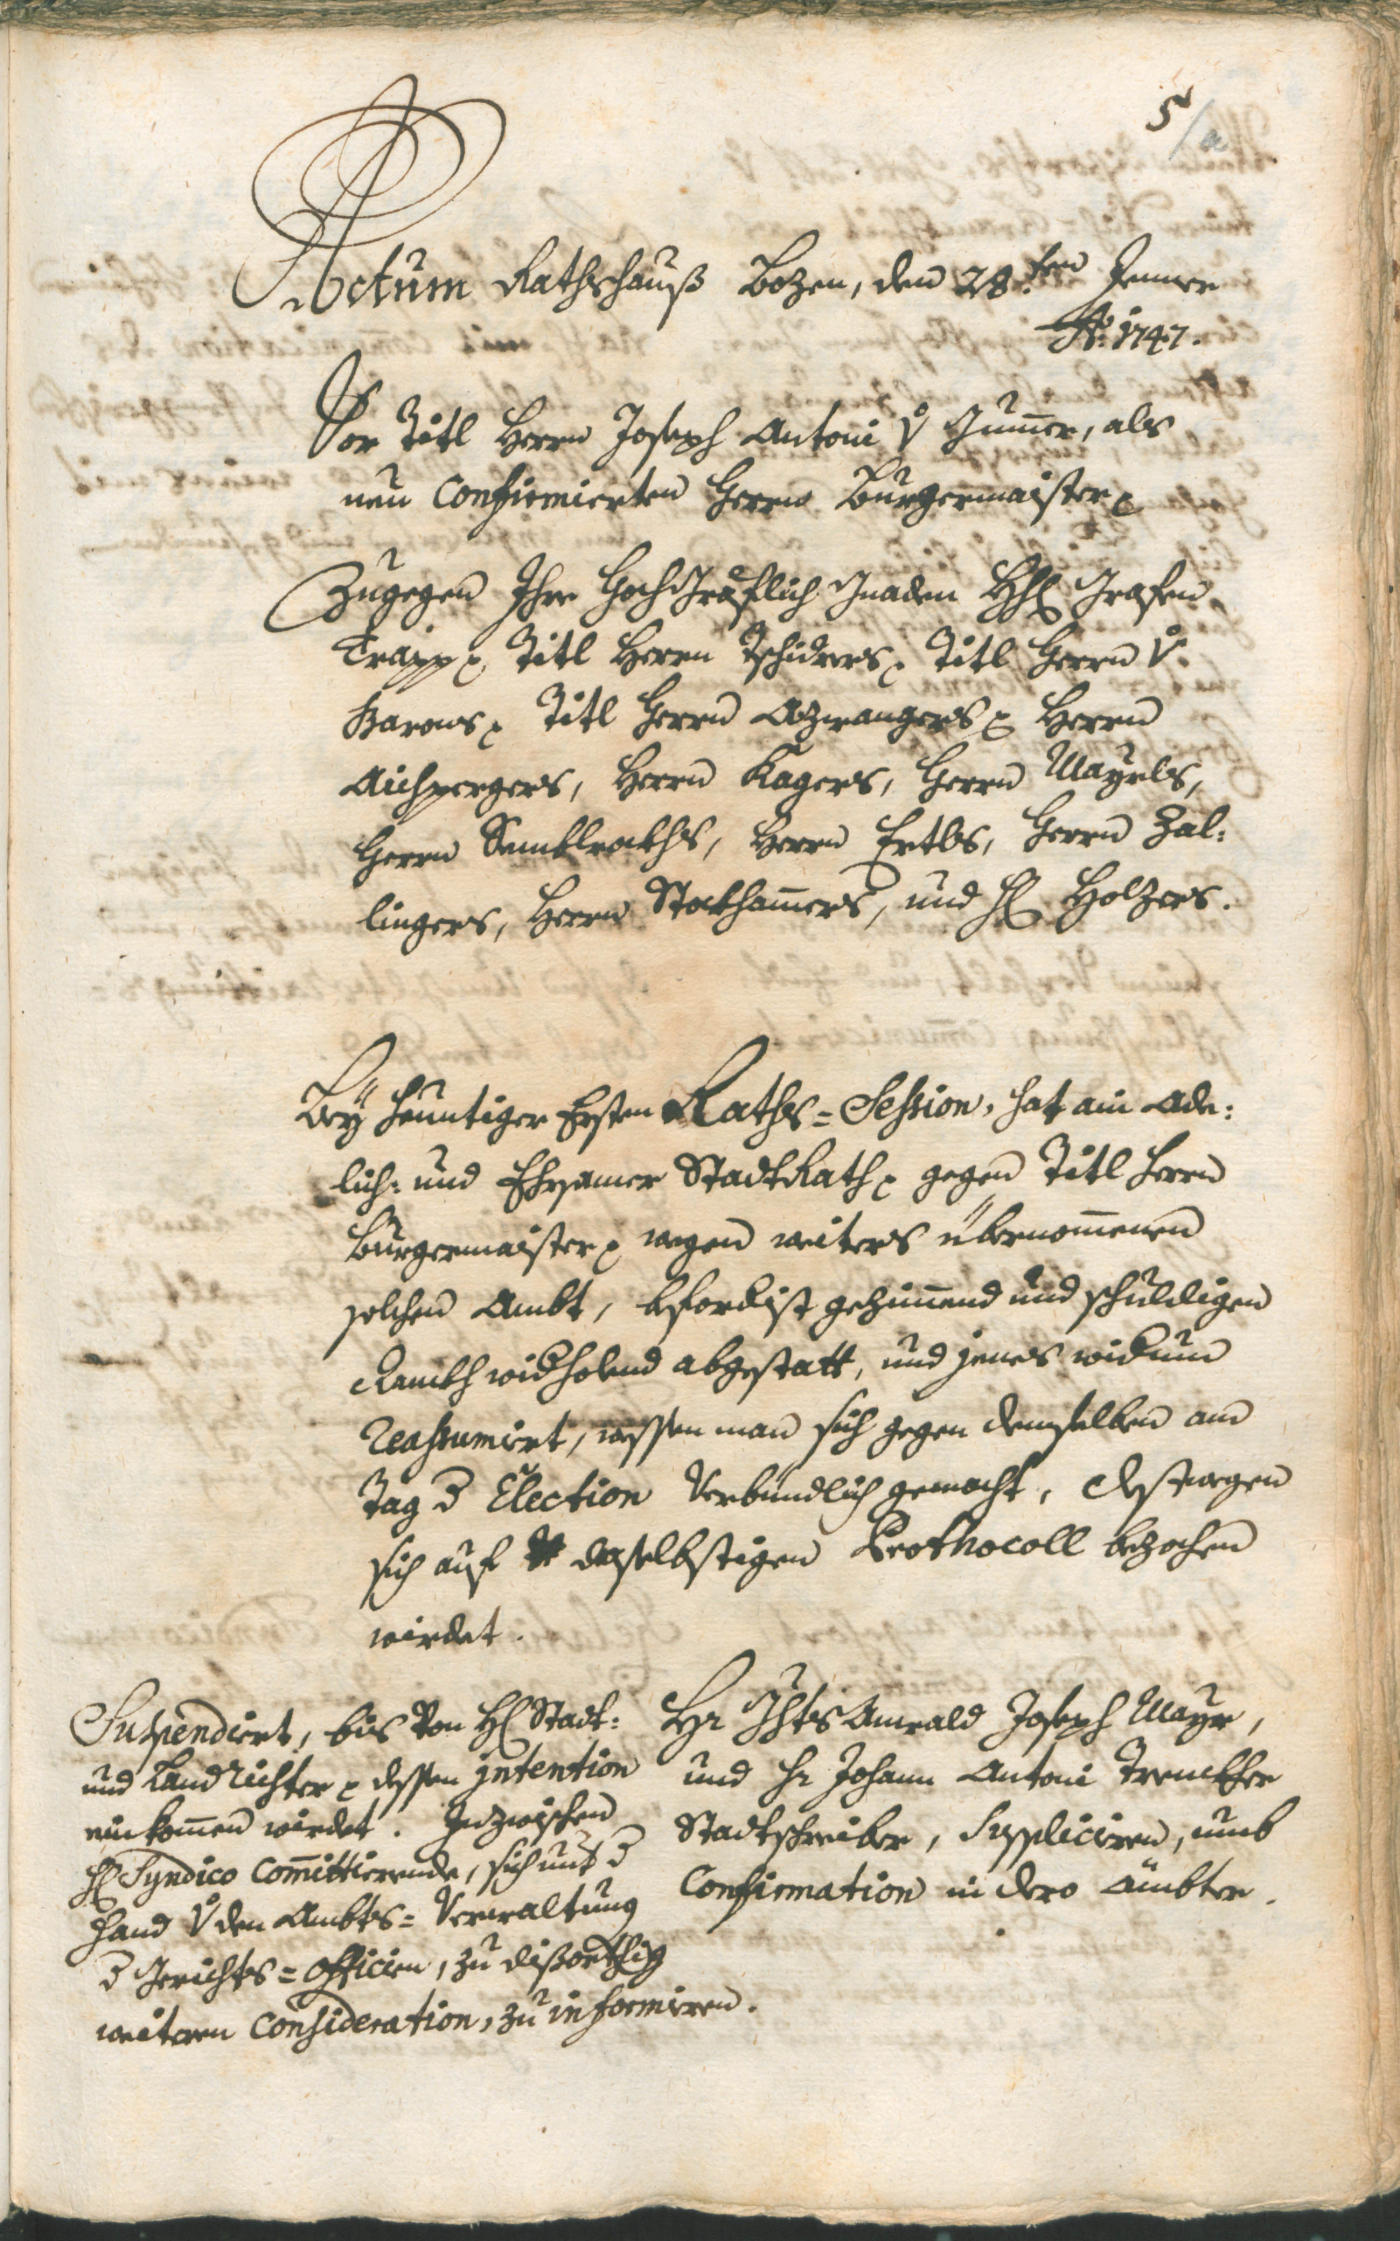 5/a
Actum Rathshauß Bozen, den 28.ten Jenner
Ao. 1747.
Vor Titl Herrn Joseph Antoni v Gum̄er, als
neu Confirmierten Herrn Burgermaister
Zugegen Ihre HochGräflich Gnaden HH Grafen
Trapp, Titl Herrn Tschiders, Titl Herrn v.
Zarons, Titl Herrn Azwangers, Herrn
Aichpergers, Herrn Kagers, Herrn Mayrls,
Herrn Sembleraths, Herrn Ertls, Herrn Zal:
lingers, Herrn Stokham̄ers, und H Holzers.
Bey heuntiger Ersten Raths=Session, hat ain Ade:
lich: und Ehrsamer StadtRath gegen Titl Herrn
Burgermaister wegen weiters übernom̄enen
solchen Ambt, gezim̄end und schuldigen
Danckh widholend abgestatt, und jenes widum
Reassumirt, wessen man sich gegen demselben am
Tag d Election Verbündlich gemacht, destwegen
sich auf daselbstigen Prothocoll bezochen
wirdet.
Suspendiert, bis Von H Stadt:
und LandRichter dessen jntention
einkom̄en wirdet. Inzwischen
H Syndico Com̄ittierende, sich unt d
Hand v den Ambts=Verwaltung
d Gerichts=Officien, zu dißorthig
weitern Consideration, zu informiren.
Hr Ghts Anwald Joseph Mayr,
und Hr Johann Antoni Trenckher
Stadtschreiber, Suppliciren, umb
Confirmation in dero Ämbter.